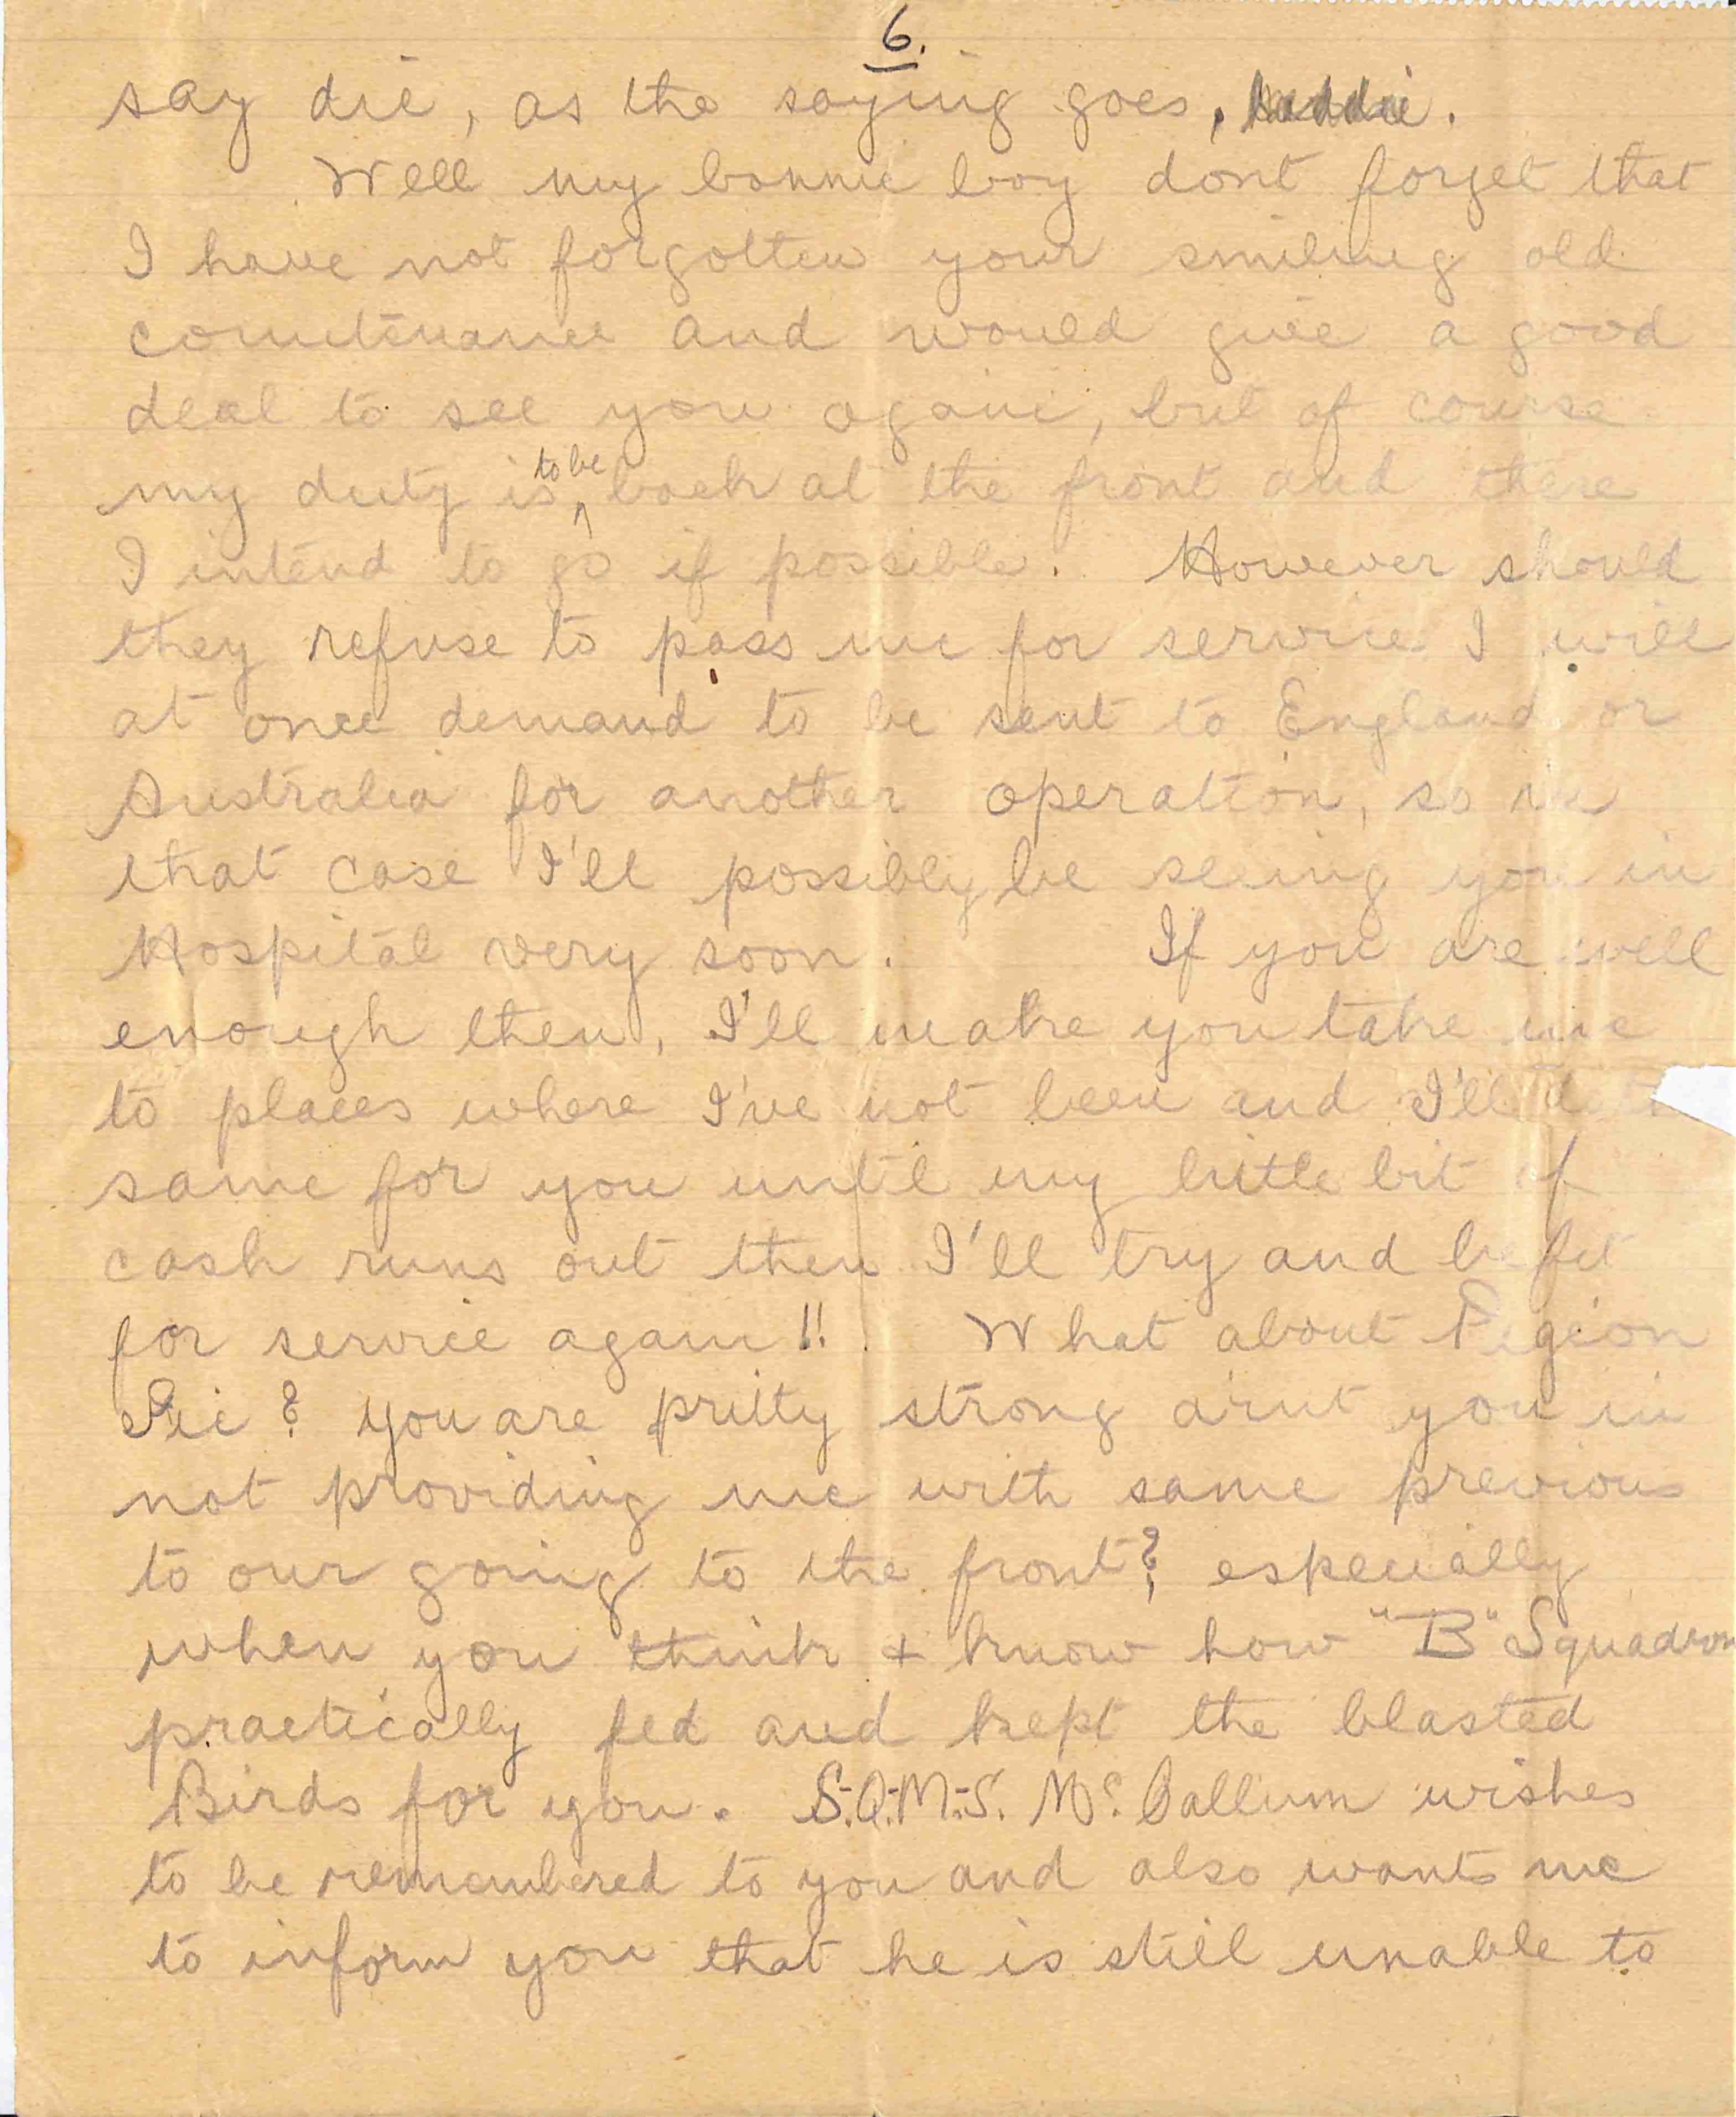 6.
say die, as the saying goes, laddie.
Well my bonnie boy dont forget that
I have not forgotten your smiling old
countenance and would give a good
deal to see you again, but of course
my duty is to be back at the front and there
I intend to go if possible. However should
they refuse to pass me for service I will
at once demand to be sent to England or
Australia for another operation, so in
that case I'll possibly be seeing you in
Hospital very soon. If you are well
enough then, I'll make you take me
to places where I've not been and I'll
same for you until my little bit of
cash runs out then I'll try and be fit
for service again!! What about Pigion
Pie? you are pritty strong a'rnt you in
not providing me with same previous
to our going to the front? especially
when you think & know how "B" Squadron
practically fed and kept the blasted
Birds for you. S.Q.M.S. Mc. Callum wishes
to be remembered to you and also wants me
to inform you that he is still unable to